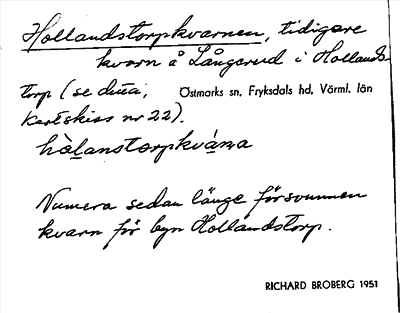 Hollandstorpkvarnen, tidigare
kvarn å Långerud i Hollands-
torp (se detta, Östmarks sn, Fryksdals hd, Värml. län
Kartskiss nr 22).
hòlanstorpkvána
Numera sedan länge försvunnen
kvarn för byn Hollandstorp.
RICHARD BROBERG 1951